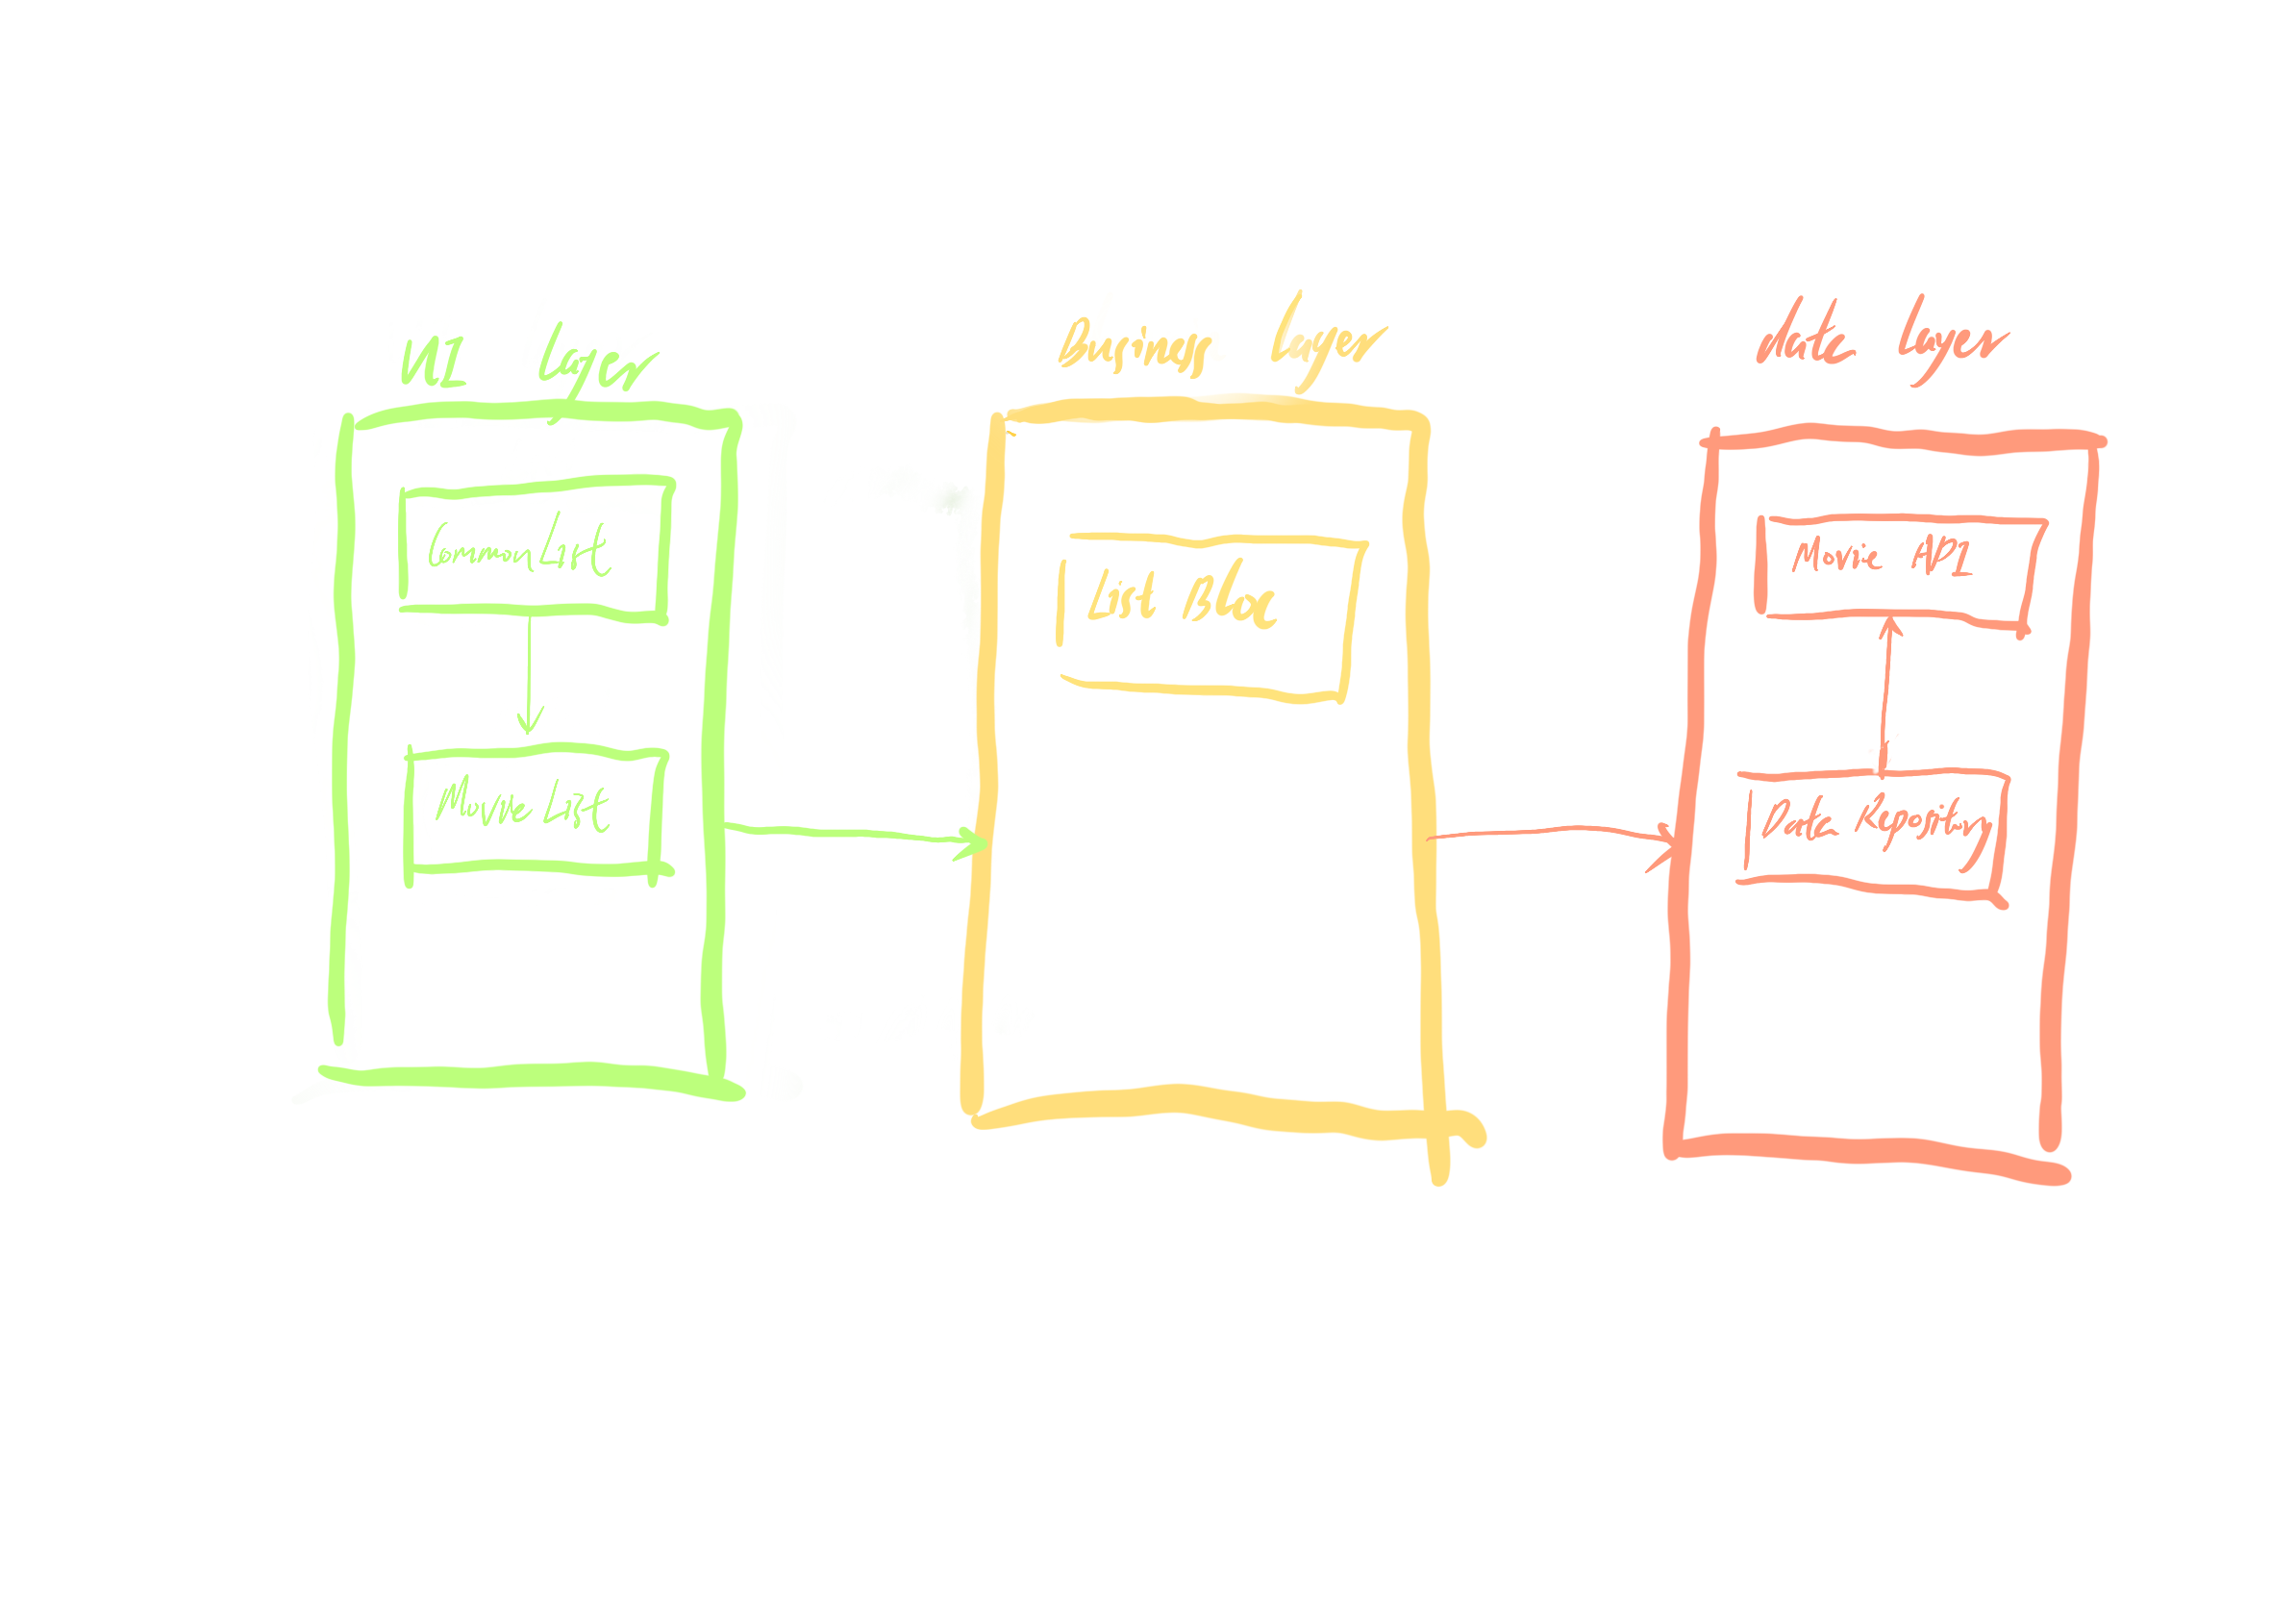 UI layer
CommonList
Movie List
Business layer
List Bloc
Data layer
Movie API
Data Repository